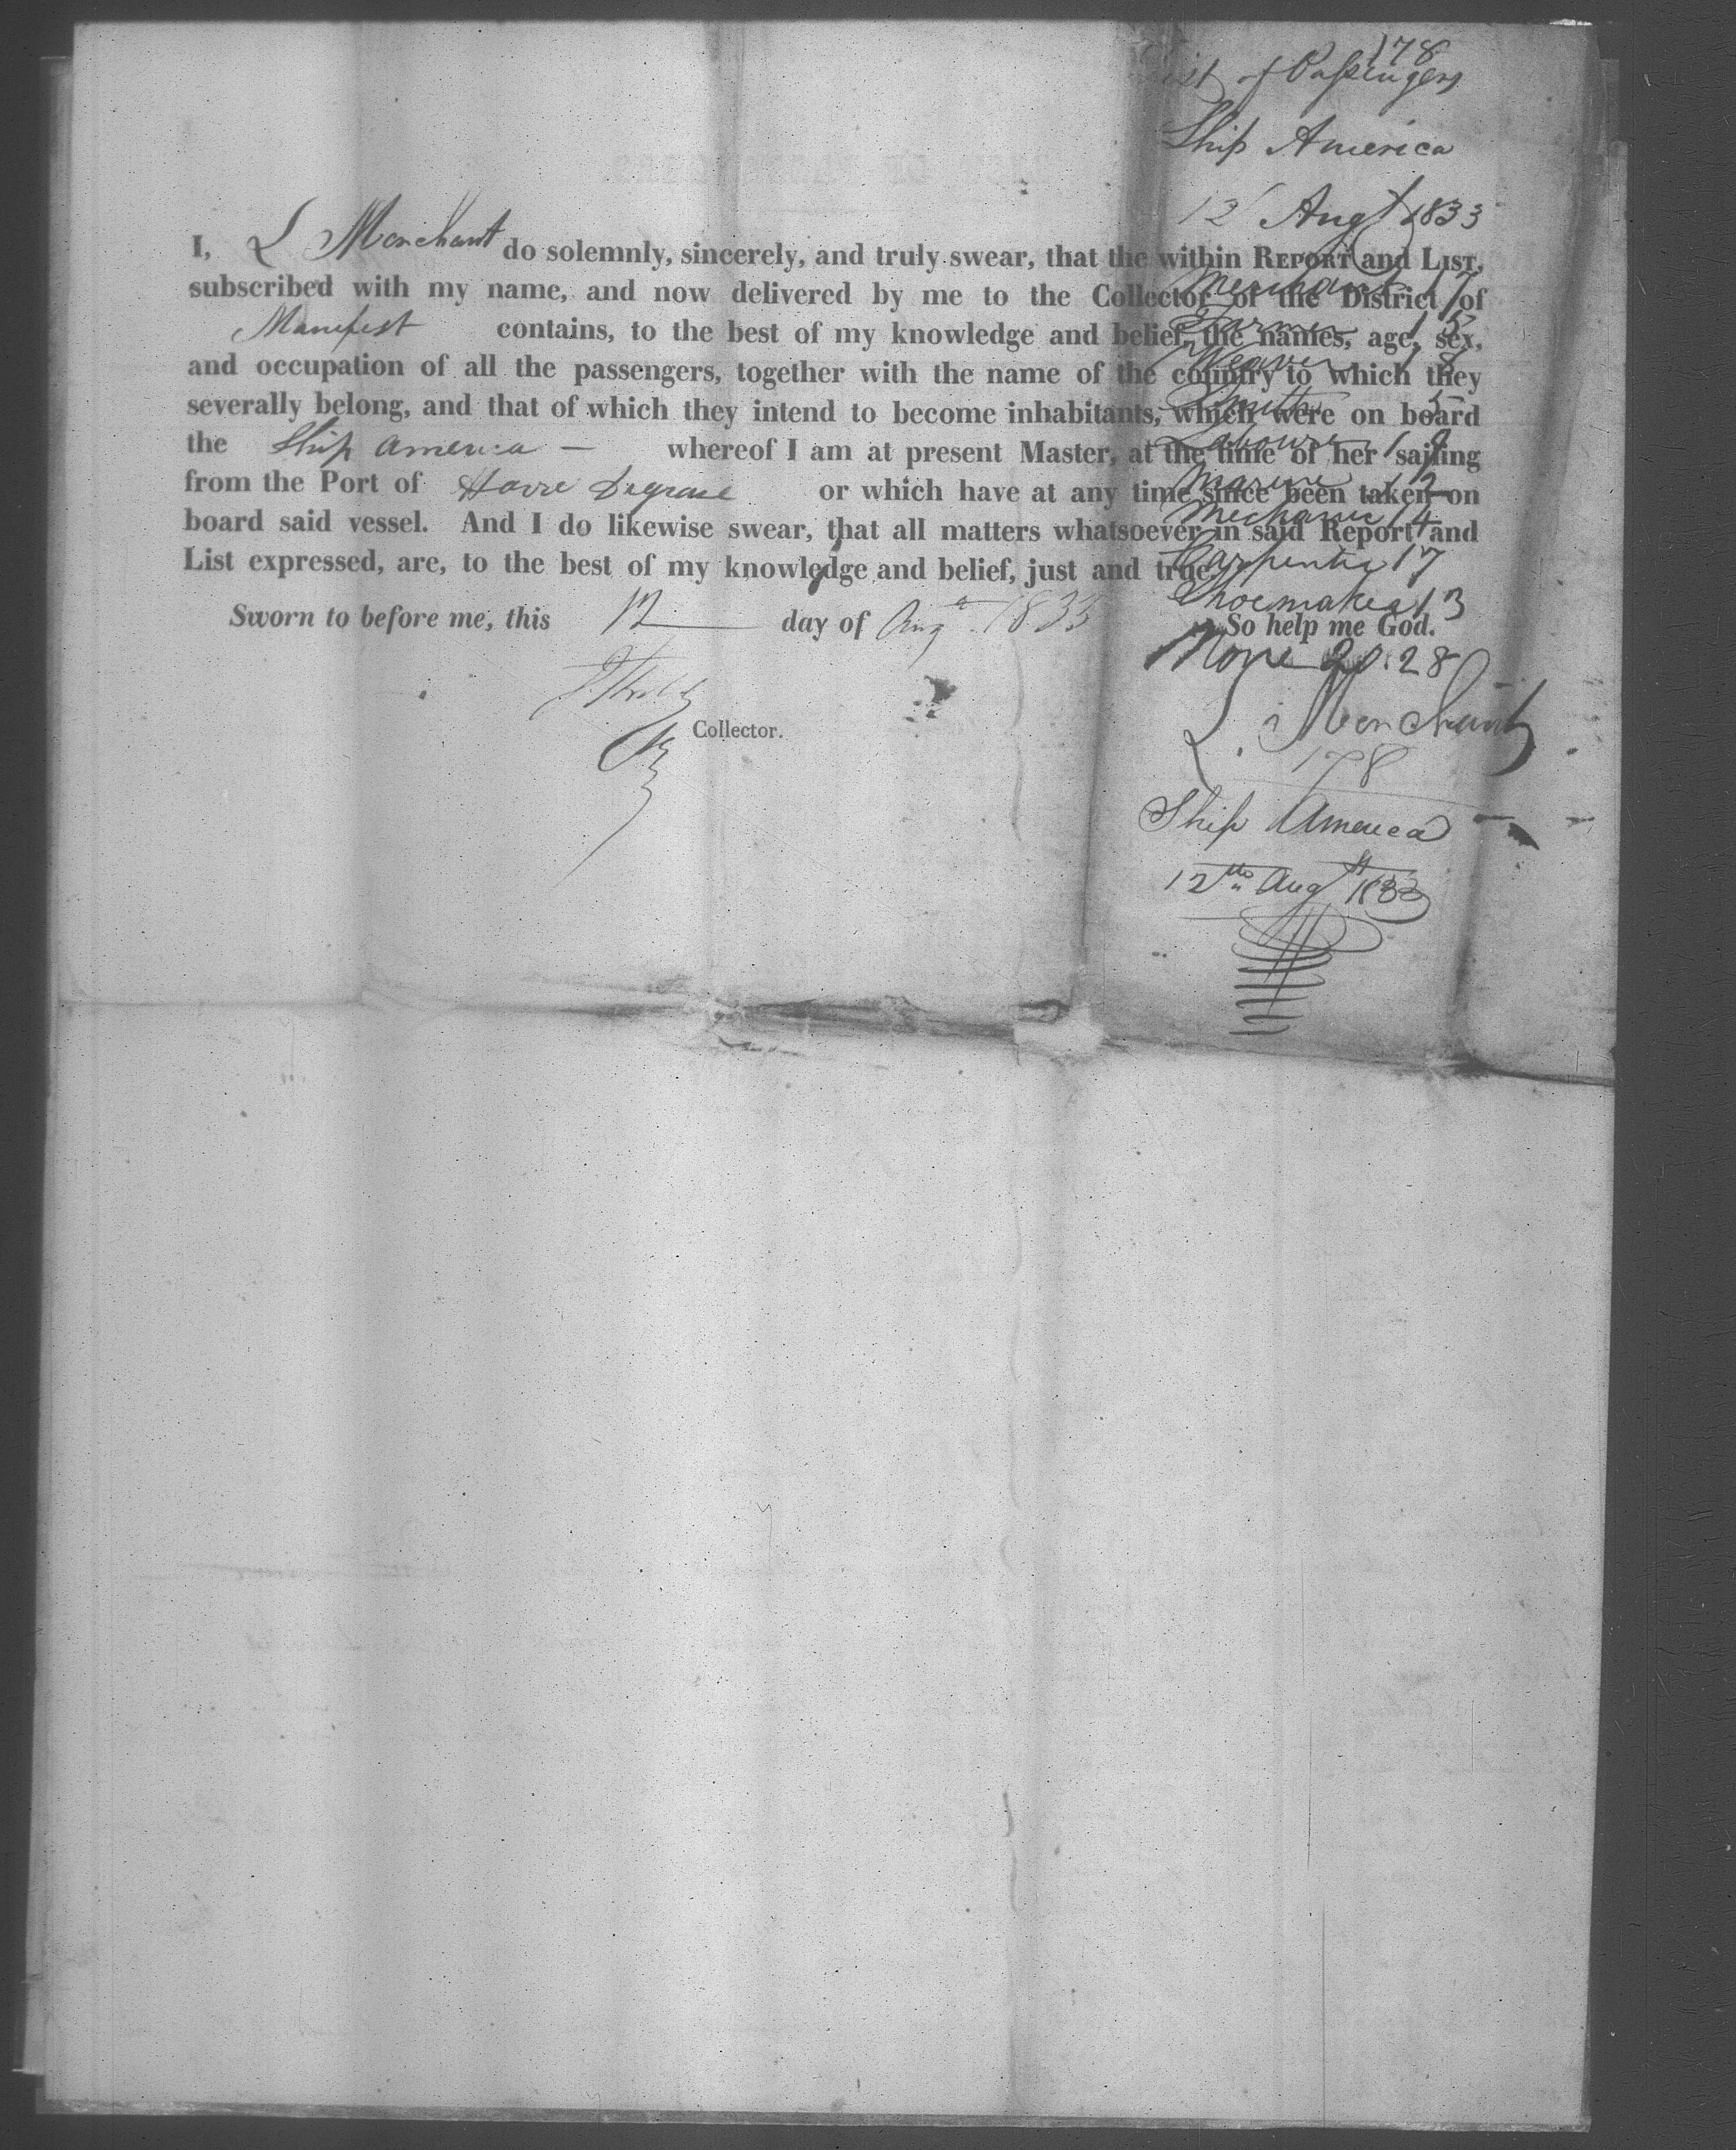 178
List of Passengers
Ship America
12 Augt 1833
I, L Merchant do solemnly, sincerely, and truly swear, that the within REPORT and LIST,
subscribed with my name, and now delivered by me to the Collector of the District of
Manifest contains, to the best of my knowledge and belief, the names, age, sex,
and occupation of all the passengers, together with the name of the country to which they
severally belong, and that of which they intend to become inhabitants, which were on board
the Ship America — whereof I am at present Master, at the time of her sailing
from the Port of Havre Degrace or which have at any time since been taken on
board said vessel. And I do likewise swear, that all matters whatsoever in said Report and
List expressed, are, to the best of my knowledge and belief, just and true.
Merchant 17
Farmer 15
Weaver 18
Smith 5
Labourer 19
Marine 12
Mechanic 14
Carpenter 17
Shoemaker 13
Sworn to before me, this 12 day of Aug. 1833 So help me God.
None 28
L. Merchant
Collector.
178
Ship America
12th Augt 1833